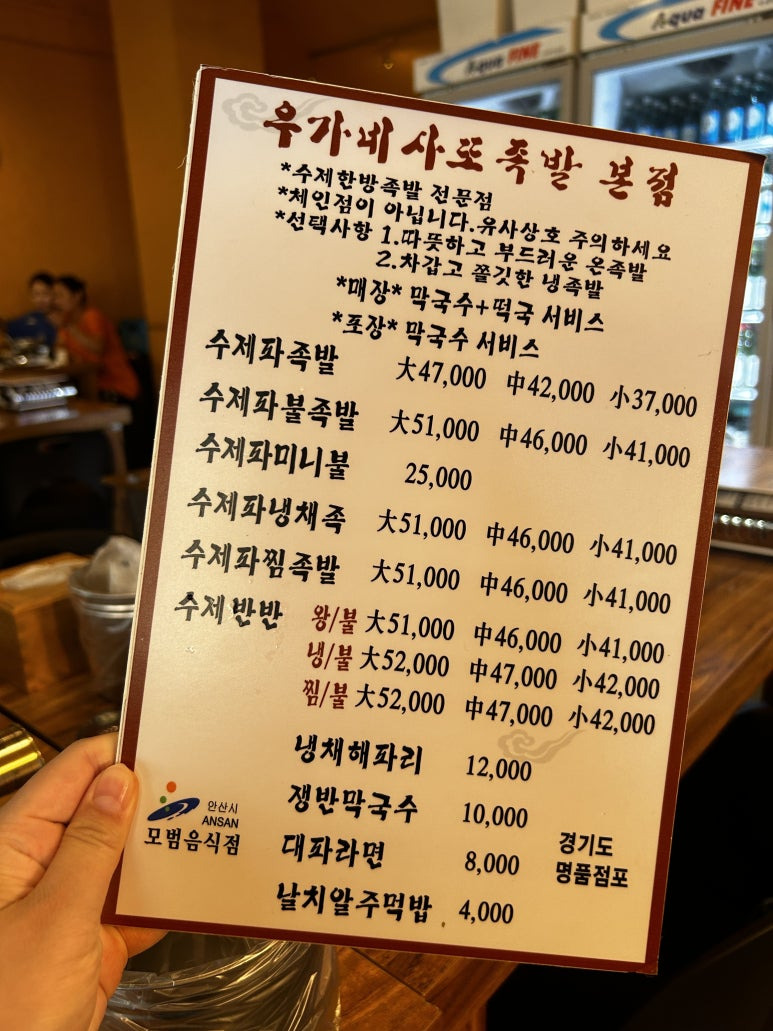 Aqua FINE
Aqua FINE
우가네사또족발 본점
*수제한방족발 전문점
*체인점이 아닙니다.유사상호 주의하세요
*선택사항 1.따뜻하고 부드러운 온족발
2.차갑고 쫄깃한 냉족발
*매장* 막국수+떡국 서비스
*포장* 막국수 서비스
수제파족발 大47,000 中42,000 小37,000
수제파불족발 大51,000 中46,000 小41,000
수제파미니불 25,000
수제파냉채족 大51,000 中46,000 小41,000
수제파찜족발 大51,000 中46,000 小41,000
수제반반 왕/불 大51,000 中46,000 小41,000
냉/불 大52,000 中47,000 小42,000
찜/불 大52,000 中47,000 小42,000
냉채해파리 12,000
쟁반막국수 10,000
대파라면 8,000
날치알주먹밥 4,000
안산시
ANSAN
모범음식점
경기도
명품점포